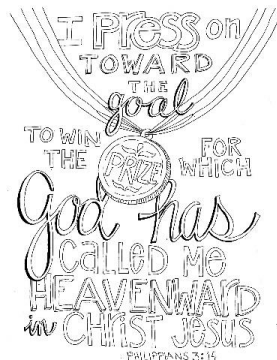 I PRESS on
TOWARD
THE
goal
TO WIN
THE
PRIZE
FOR
WHICH
God has
called Me
HEAVENWARD
in CHRIST JESUS
PHILIPPIANS 3:14